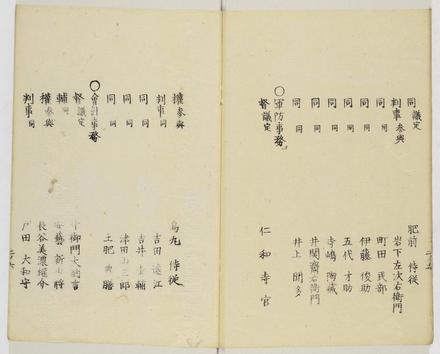 同 議定 肥前 侍従
判事 参與 岩下左次右衛門
同 同 町田 民部
同 同 伊藤 俊助
同 同 五代 才助
同 同 寺嶋 陶蔵
同 同 井関齋右衛門
同 同 井上 聞多
〇軍防事務
督 議定 仁和寺宮
権 参與 烏丸 侍従
判事 同 吉田 遠江
同 同 吉井 輔
同 同 津田山三郎
同 同 土肥 典膳
〇會計事務
督 議定 御門大納言
輔 同 安藝 新少将
權 参與 長谷美濃權介
判事 同 戸田 大和守